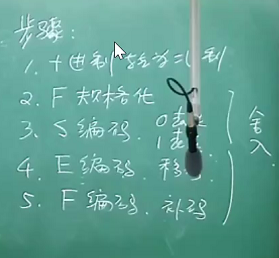 步骤:
1. 十进制转为二进制
2. F 规格化
3. S 编码. 0表
1表
4. E 编码. 移
5. F 编码. 补码
舍入